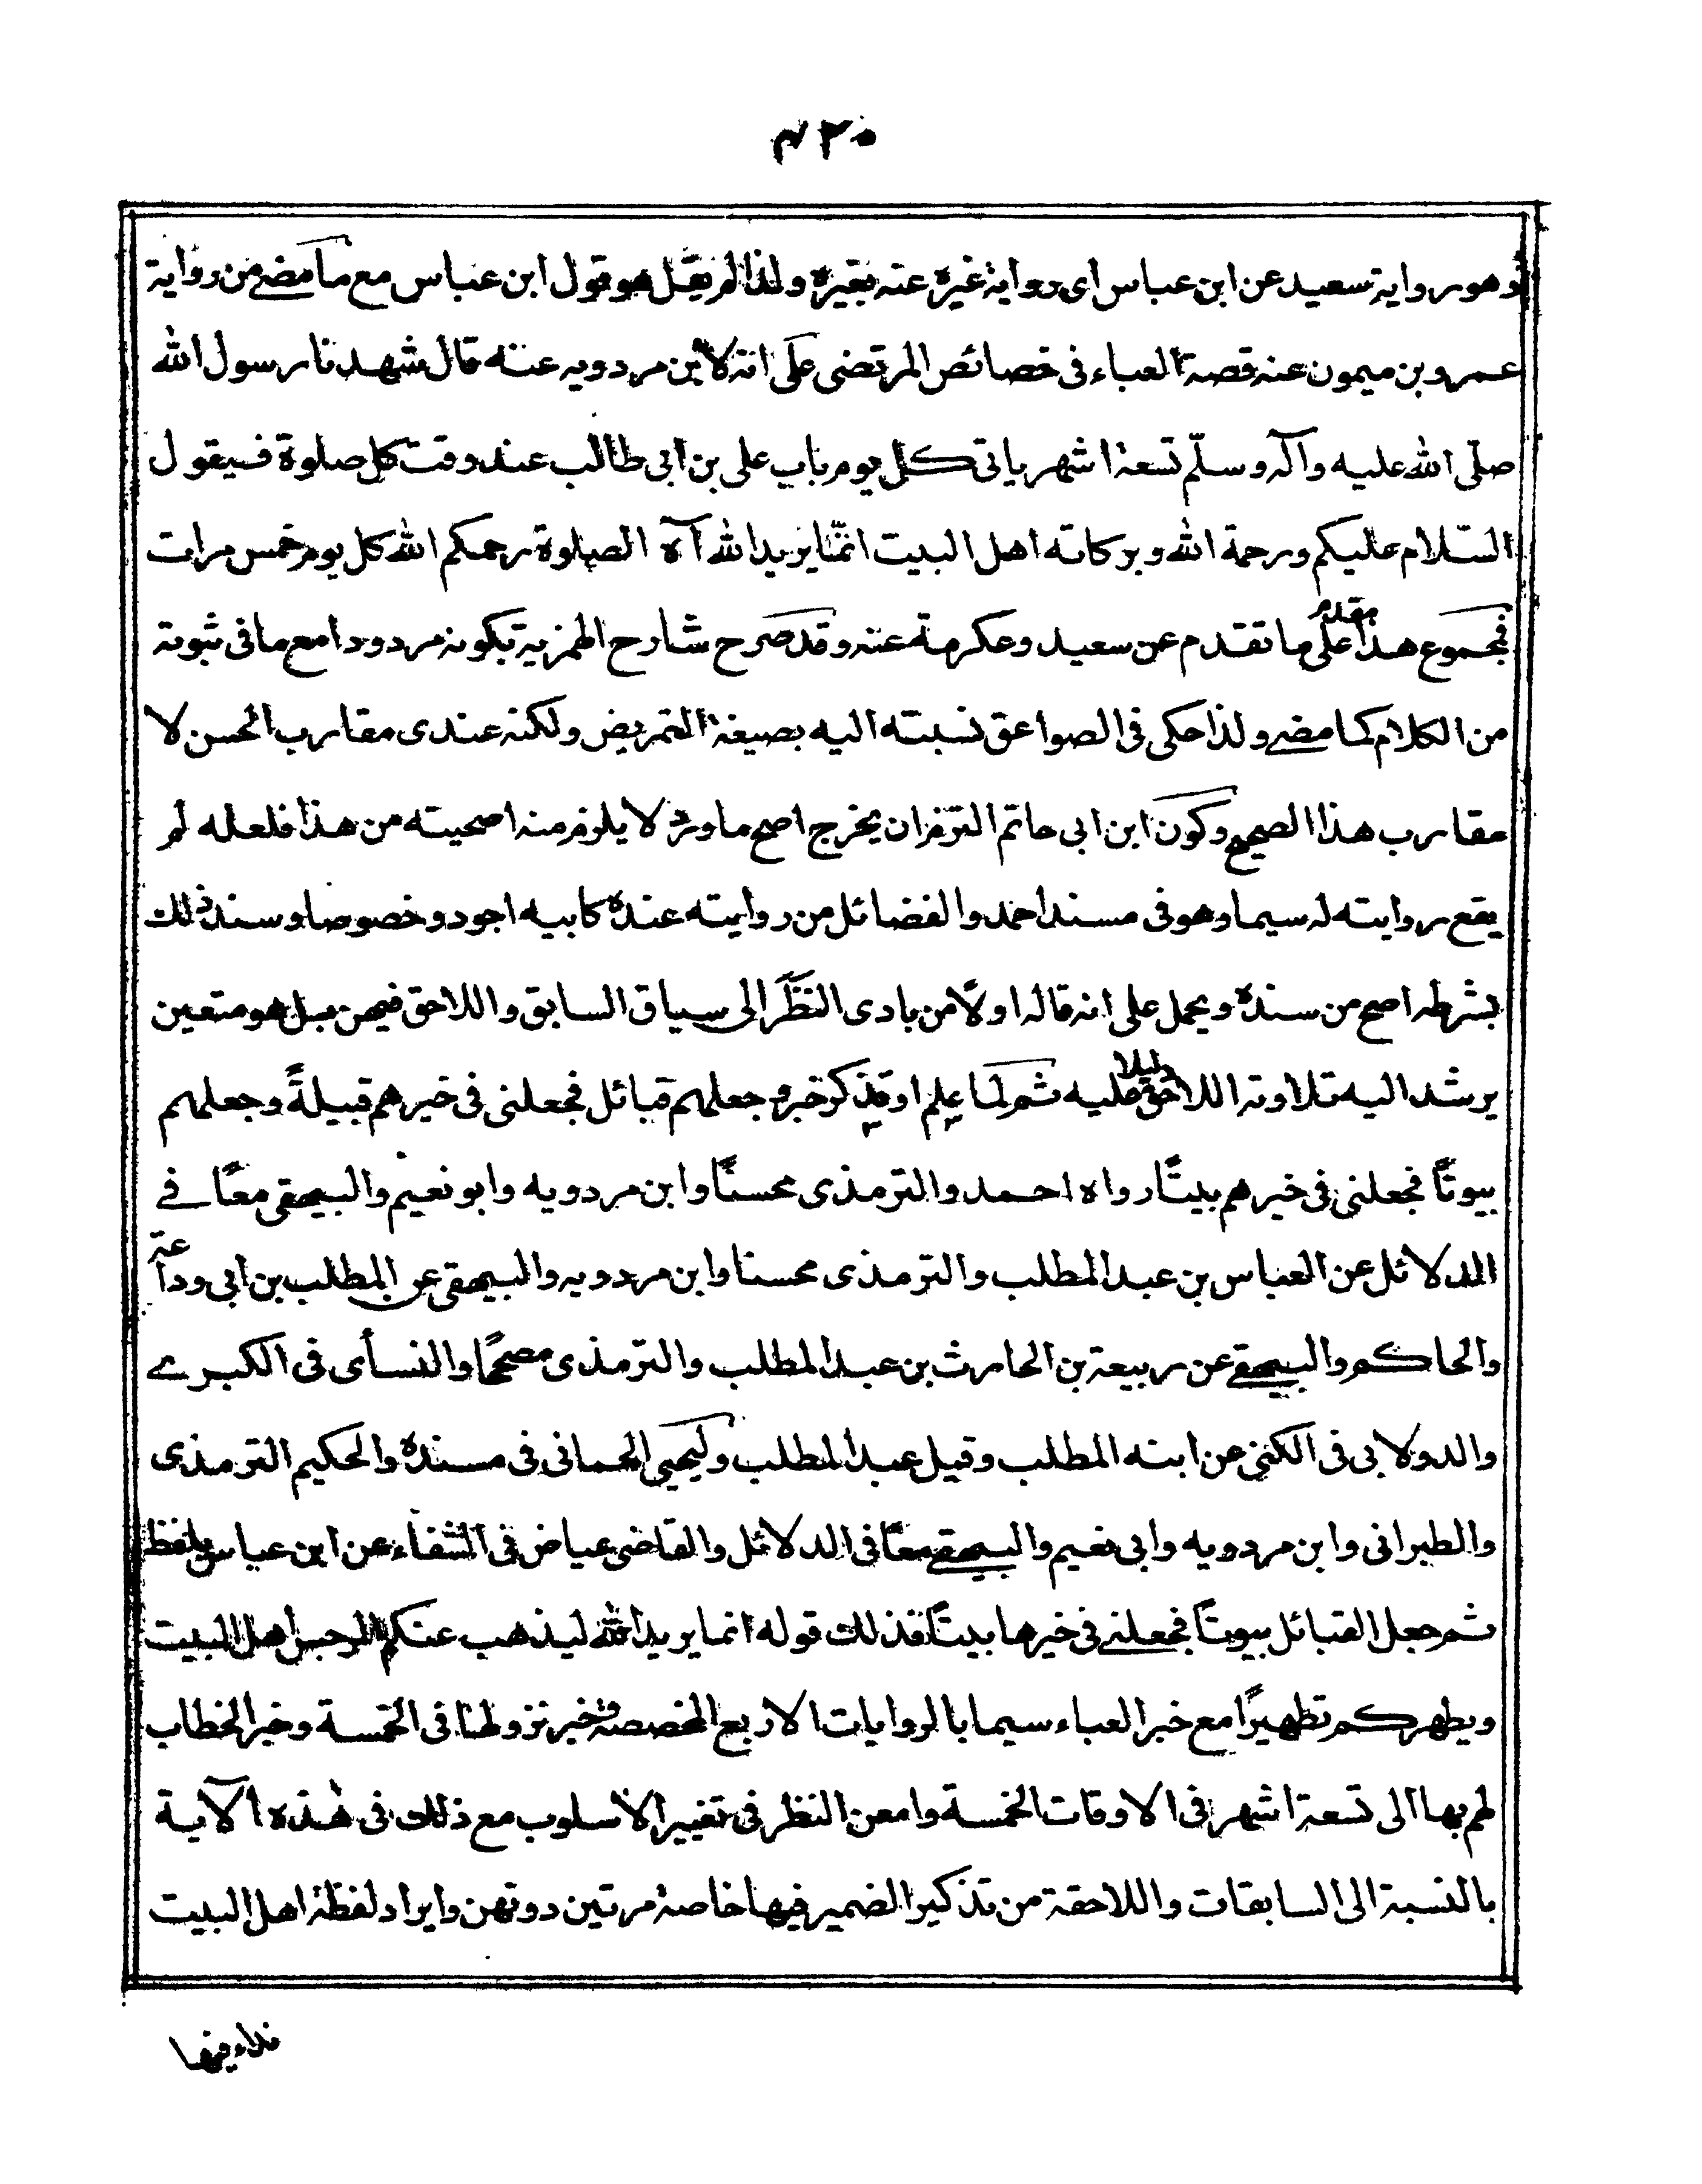 ٤٢٥
وهو رواية سعيد عن ابن عباس اى رواية غيره عنه بغيره ولذا لم يقل هو قول ابن عباس مع ما مضے من رواية
عمرو بن ميمون عنه قصة العباء فى خصائص المرتضى على انه لابن مردويه عنه قال شهدنا رسول الله
صلّى الله عليه وآله وسلّم تسعة اشهر ياتى كل يوم باب على بن ابى طالب عند وقت كل صلوة فيقول
السّلام عليكم ورحمة الله وبركاته اهل البيت انّما يريد الله آه الصلوة رحمكم الله كل يوم خمس مرات
فمجموع هذا مقدم على ما تقدم عن سعيد وعكرمة عنه وقد صرح شارح الهمزية بكونه مردودا مع ما فى ثبوته
من الكلام كما مضے ولذا حكى فى الصواعق نسبته اليه بصيغة التمريض ولكنه عندى مقارب الحسن لا
مقارب هذا الصحيح وكون ابن ابى حاتم التزم ان يخرج اصح ما ورد لا يلزم منه اصحيته من هذا فلعله لم
يقع روايته له سيما وهو فى مسند احمد والفضائل من روايته عنده كابيه اجود وخصوصا وسند ذلك
بشرطه اصح من سنده ويحمل على انه قاله اولًا من بادى النظَر الى سياق السابق واللاحق فيهن بل هو متعين
يرشد اليه تلاوته اللاحق دليلا عليه ثم لمّا علم او قد كر خبر وجعلهم قبائل فجعلنى فى خيرهم قبيلةً وجعلهم
بيوتًا فجعلنى فى خيرهم بيتًا رواه احمد والترمذى محسنًا وابن مردويه وابو نعيم والبيهقى معًا فے
الدلائل عن العباس بن عبد المطلب والترمذى محسنا وابن مردويه والبيهقى عن المطلب بن ابى وداعة
والحاكم والبيهقے عن ربيعة بن الحارث بن عبد المطلب والترمذى مصححًا والنسأى فى الكبرے
والدولابى فى الكنى عن ابنه المطلب وقيل عبد المطلب وليحيى الحمانى فى مسنده والحكيم الترمذى
والطبرانى وابن مردويه وابى نعيم والبيهقے معًا فى الدلائل والقاضى عياض فى الشفاء عن ابن عباس بلفظ
ثم جعل القبائل بيوتًا فجعلنے فى خيرها بيتًا فذلك قوله انما يريد الله ليذهب عنكم الرجس اهل البيت
ويطهركم تطهيرًا مع خبر العباء سيما بالروايات الاربع المخصصة وخبر نزولها فى الخمسة وخبر الخطاب
لهم بها الى تسعة اشهر فى الاوقات الخمسة وامعن النظر فى تغيير الاسلوب مع ذلك فى هٰذه الآية
بالنسبة الى السابقات واللاحقة من تذكير الضمير فيها خاصة مرتين دونهن وايراد لفظة اهل البيت
نداء فيها